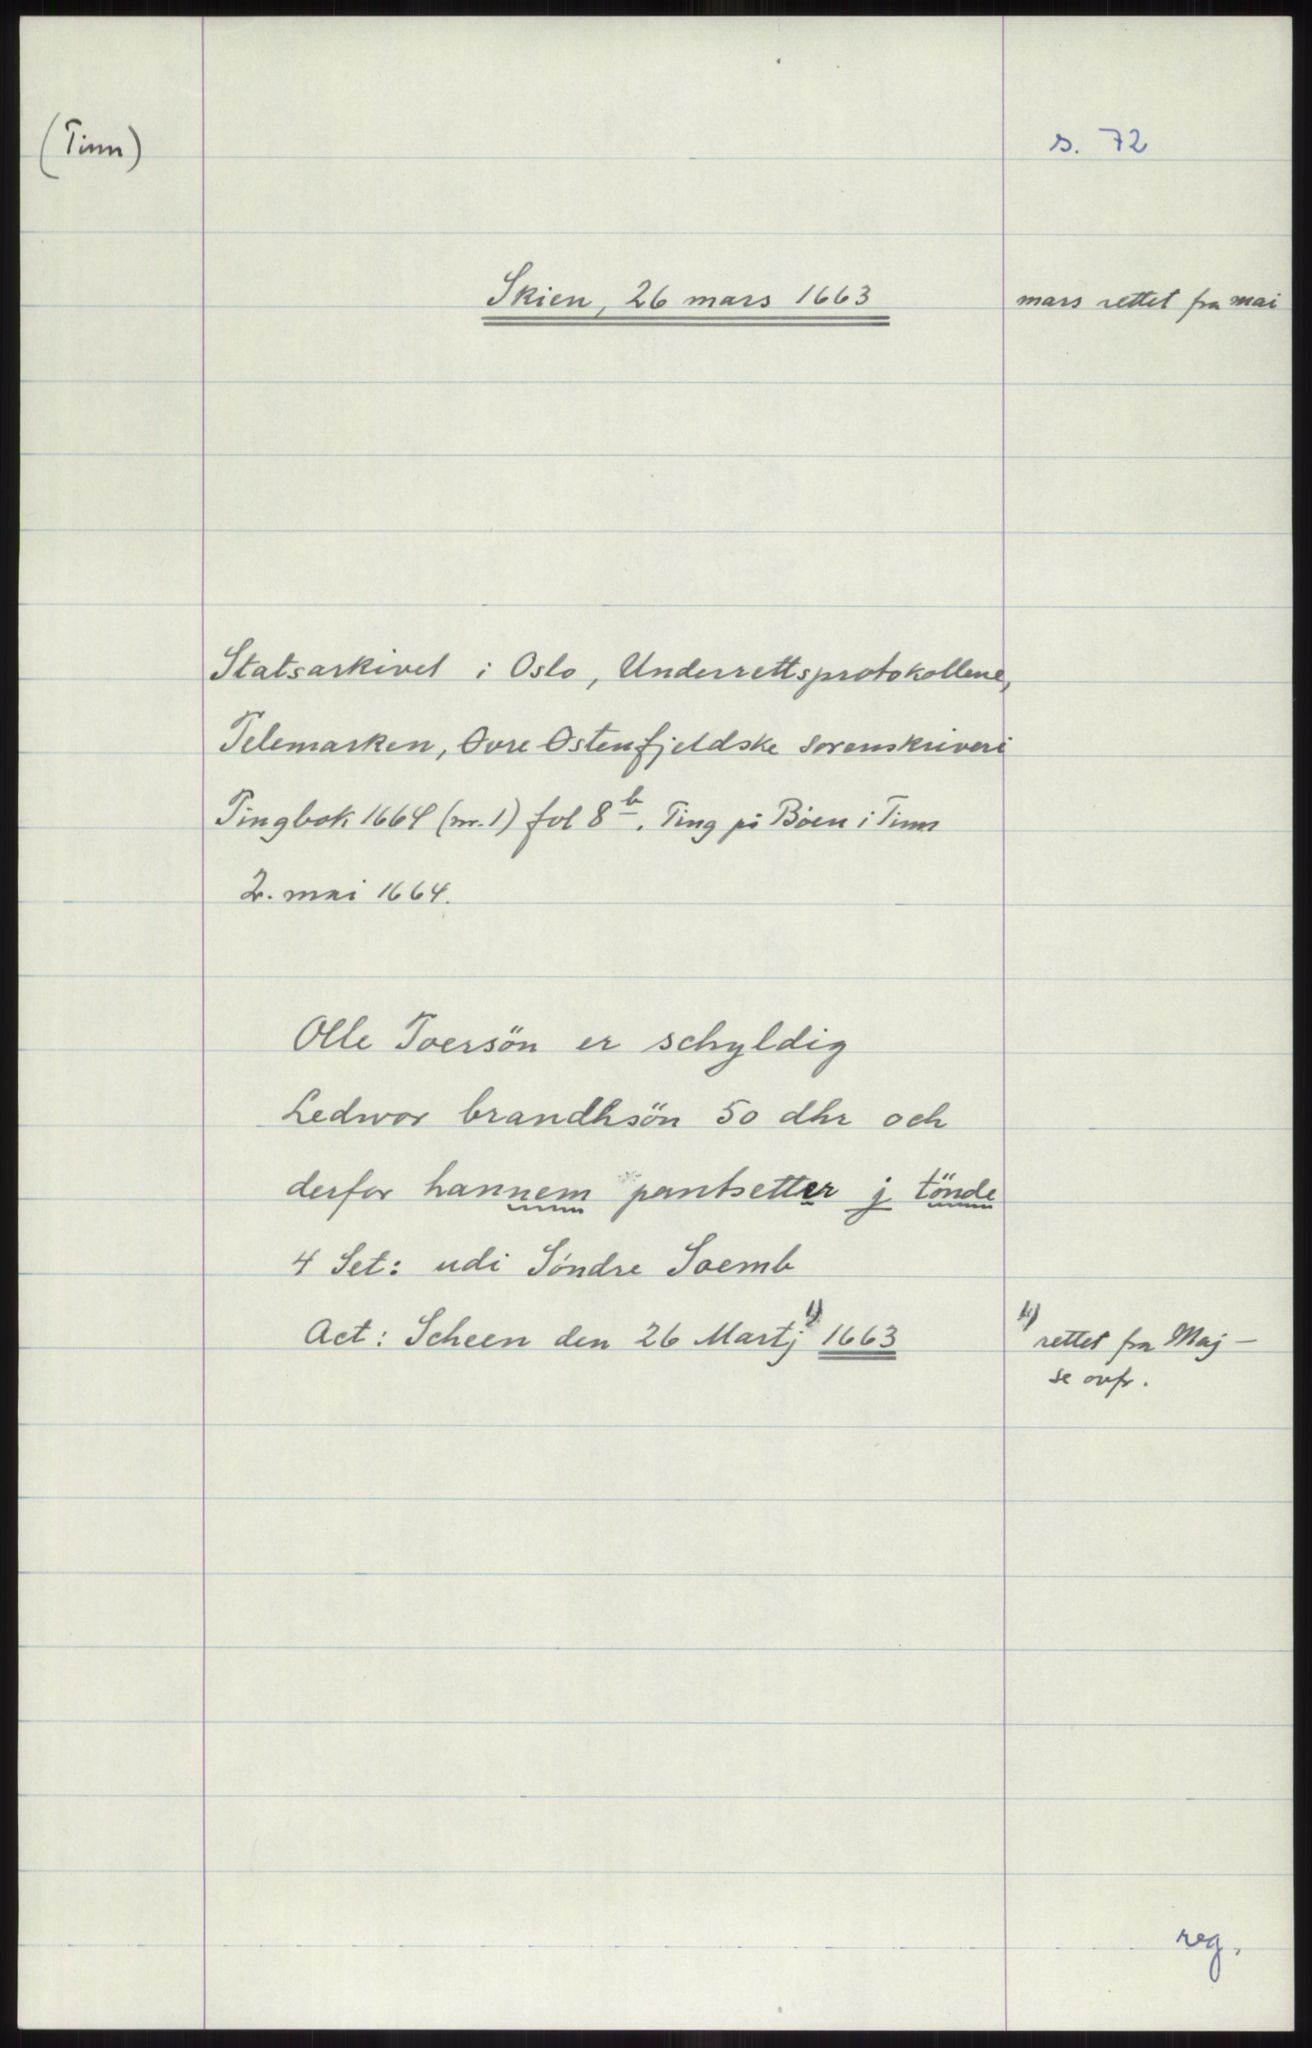 (Tinn)
s. 72
Skien, 26 mars 1663
mars rettet fra mai
Statsarkivet i Oslo, Underrettsprotokollene,
Telemarken, Øvre Østenfjeldske sorenskriveri
Tingbok 1664 (nr. 1) fol 8b. Ting på Bøen i Tinn
2. mai 1664.
Olle Toersön er schyldig
Ledwor brandhsön 50 dhr och
derfor hannem pantsetter j tönde
4 Set: udi Söndre Soemb
Act: Scheen den 26 Martj 1) 1663
1) rettet fra Maj —
se ovfr.
reg.